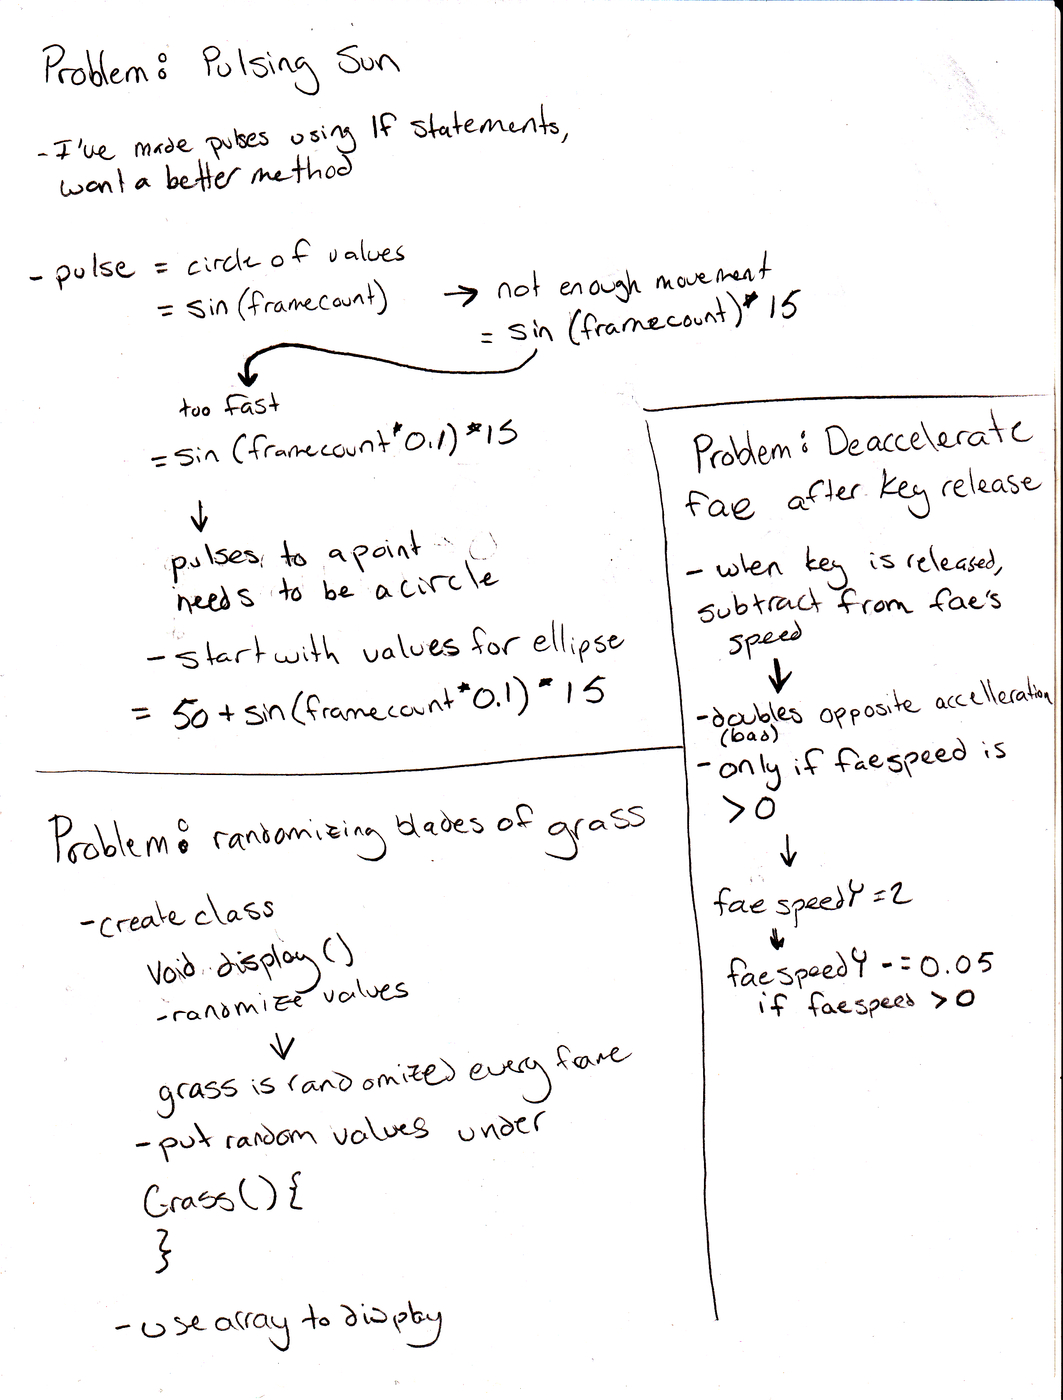 Problem: Pulsing Sun
- I've made pulses using If statements,
want a better method
- pulse = circle of values
= sin(framecount)
→ not enough movement
= sin (framecount)* 15
too fast
= sin (framecount*0.1)*15
↓
pulses to a point
needs to be a circle
- start with values for ellipse
= 50 + sin(framecount*0.1)*15
Problem: randomizing blades of grass
- create class
Void display()
- randomize values
↓
grass is randomized every frame
- put random values under
Grass(){
}
- use array to display
Problem: Deaccelerate
fae after key release
- when key is released,
subtract from fae's
speed
↓
- doubles opposite accelleration
(bad)
- only if faespeed is
>0
↓
faespeedY = 2
↓
faespeedY -= 0.05
if faespeed > 0